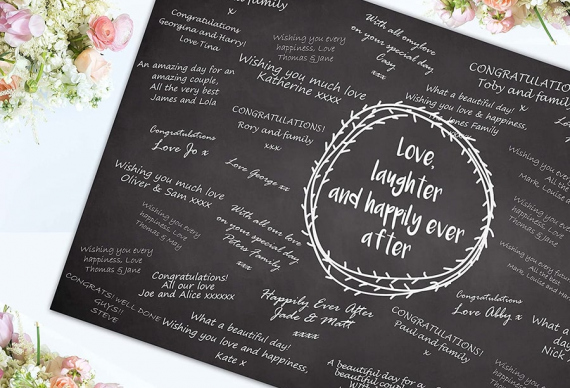 family
x
Congratulations
Georgina and Harry!
Love Tina
Wishing you every
happiness, Love
Thomas & Jane
With all our love
on your special day
xxx
CONGRATULATIO
Toby and family
x
An amazing day for an
amazing couple,
All the very best
James and Lola
Wishing you much love
Katherine xxxx
What a beautiful day!
Wishing you love & happiness,
Jones Family
CONGRATULATIONS!
Rory and family
xxx
Congratulations
Love Jo x
Love George xx
Wishing you much love
Oliver & Sam xxxx
Wishing you every
happiness, Love
Thomas & May
With all our love
on your special day
Peters Family
xx
Love,
laughter
and happily ever
after
Wishing you
All the
Mark, Louise a
Wishing you every
happiness, Love
Thomas & Jane
Wishing you every
happiness, Love
Thomas & Jane
Wishing you eve
All the best
Mark, Louise and Ha
CONGRATS! WELL DONE
GUYS!!
STEVE
Congratulations!
All our love
Joe and Alice xxxxxx
Happily Ever After
Jade & Matt
xxxx
Congratulations
Love Abby x
CONGRATULATIONS!
Paul and family
x
What a d
Nick
What a beautiful day!
Wishing you love and happiness,
Kate x
A beautiful day for a
Wishing you
happiness
Thomas